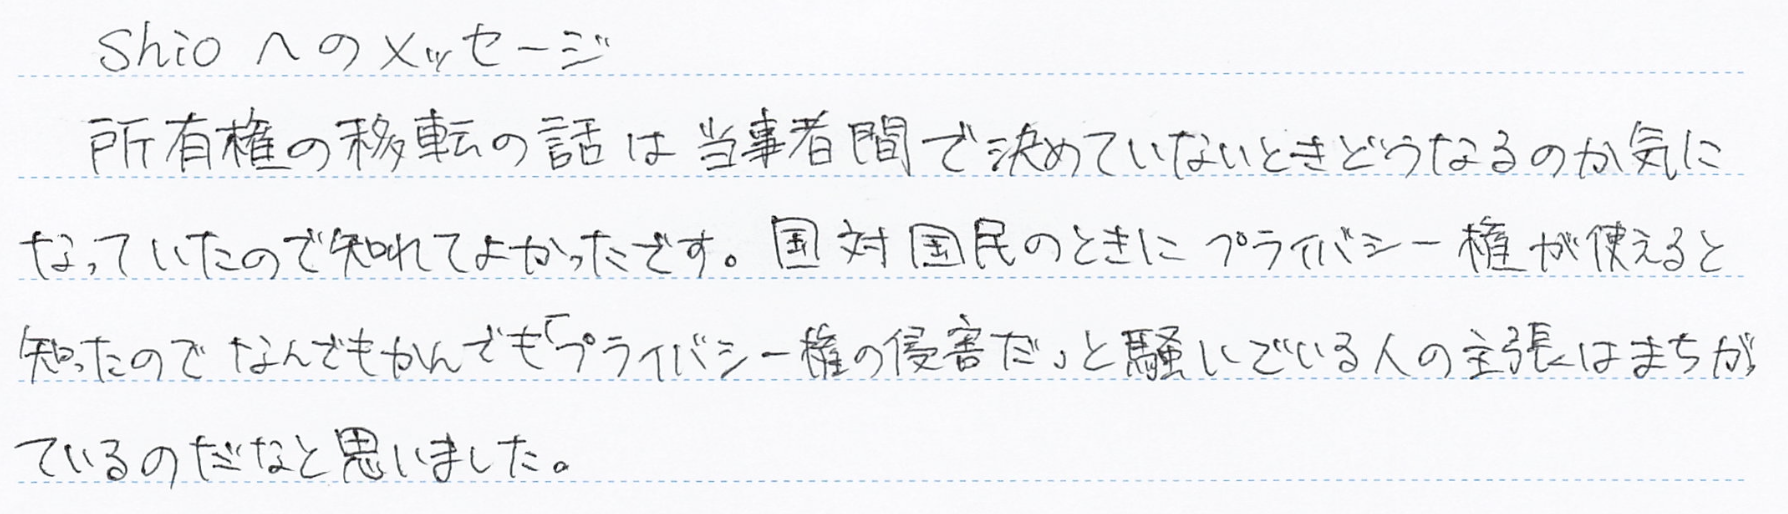 Shioへのメッセージ
所有権の移転の話は当事者間で決めていないときどうなるのか気に
なっていたので知れてよかったです。国対国民のときにプライバシー権が使えると
知ったのでなんでもかんでも「プライバシー権の侵害だ」と騒いでいる人の主張はまちが
ているのだなと思いました。